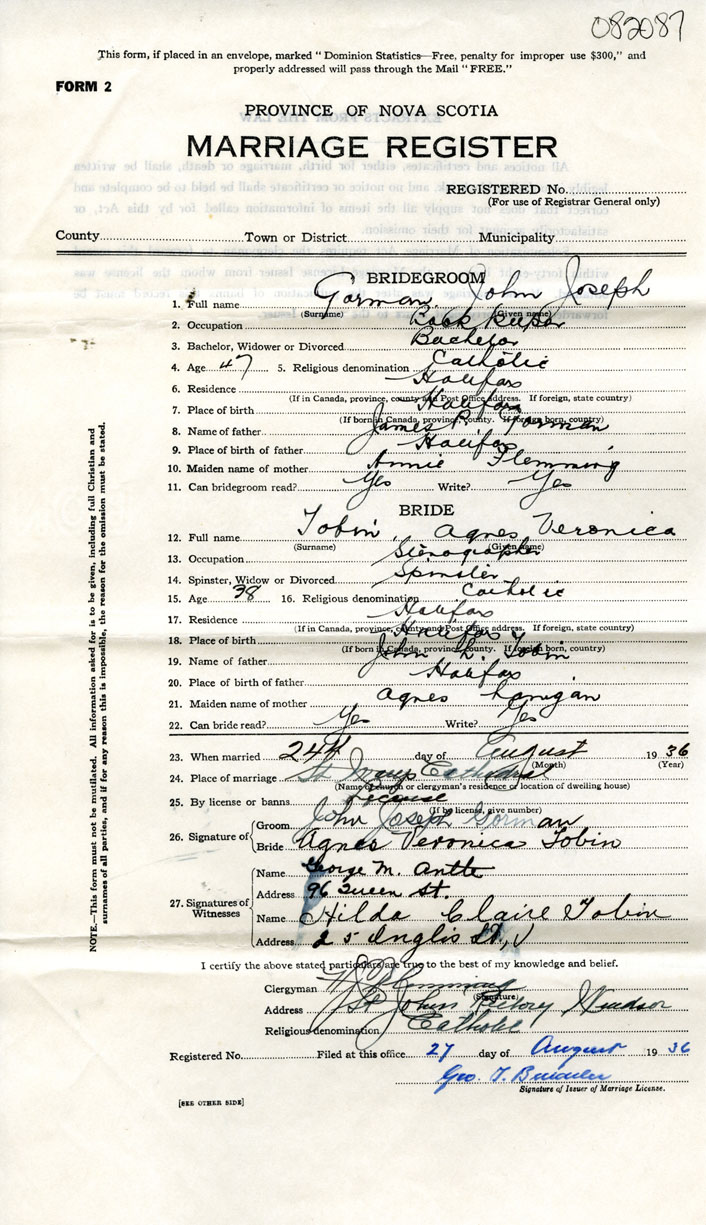 082087
This form, if placed in an envelope, marked "Dominion Statistics—Free, penalty for improper use $300," and
properly addressed will pass through the Mail "FREE."
FORM 2
PROVINCE OF NOVA SCOTIA
MARRIAGE REGISTER
REGISTERED No.
(For use of Registrar General only)
County Town or District Municipality
BRIDEGROOM
1. Full name Gorman, John Joseph
(Surname) (Given name)
2. Occupation Book Keeper
3. Bachelor, Widower or Divorced Bachelor
4. Age 47 5. Religious denomination Catholic
6. Residence Halifax
(If in Canada, province, county and Post Office address. If foreign, state country)
7. Place of birth Halifax
(If born in Canada, province, county. If foreign born, country)
8. Name of father James P. Gorman
9. Place of birth of father Halifax
10. Maiden name of mother Annie Flemming
11. Can bridegroom read? Yes Write? Yes
BRIDE
12. Full name Tobin, Agnes Veronica
(Surname) (Given name)
13. Occupation Stenographer
14. Spinster, Widow or Divorced Spinster
15. Age 38 16. Religious denomination Catholic
17. Residence Halifax
(If in Canada, province, county and Post Office address. If foreign, state country)
18. Place of birth Halifax
(If born in Canada, province, county. If foreign born, country)
19. Name of father John L. Tobin
20. Place of birth of father Halifax
21. Maiden name of mother Agnes Lanigan
22. Can bride read? Yes Write? Yes
23. When married 24th day of August 1936
(Month) (Year)
24. Place of marriage St Marys Cathedral
(Name of church or clergyman's residence or location of dwelling house)
25. By license or banns license
(If by license, give number)
26. Signature of Groom John Joseph Gorman
Bride Agnes Veronica Tobin
27. Signatures of Witnesses
Name George M. Antle
Address 96 Queen St.
Name Hilda Claire Tobin
Address 25 Inglis St.,
I certify the above stated particulars are true to the best of my knowledge and belief.
Clergyman
(Signature)
Address St Johns Rectory Windsor
Religious denomination Catholic
Registered No. Filed at this office 27 day of August 1936
Geo. T.
Signature of Issuer of Marriage License.
[SEE OTHER SIDE]
NOTE.—This form must not be mutilated. All information asked for is to be given, including full Christian and
surnames of all parties, and if for any reason this is impossible, the reason for the omission must be stated.